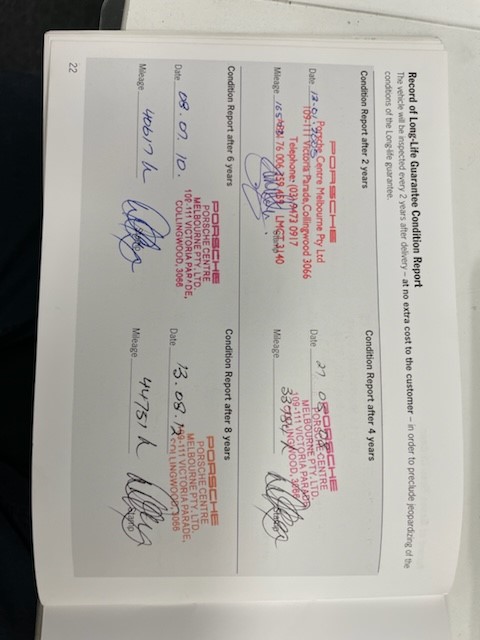 Record of Long-Life Guarantee Condition Report
The vehicle will be inspected every 2 years after delivery – at no extra cost to the customer – in order to preclude jeopardizing of the
conditions of the Long-life guarantee.
Condition Report after 2 years
PORSCHE
Porsche Centre Melbourne Pty Ltd
Date
109-111 Victoria Parade, Collingwood 3066
Telephone: (03) 9473 0917
Mileage
LMCT 3140
Condition Report after 4 years
PORSCHE
PORSCHE CENTRE
Date 27
MELBOURNE PTY. LTD.
109-111 VICTORIA PARADE,
COLLINGWOOD, 3066
Mileage
Condition Report after 6 years
PORSCHE
PORSCHE CENTRE
Date 08.07.10.
MELBOURNE PTY. LTD.
109-111 VICTORIA PARADE,
COLLINGWOOD, 3066
Mileage 40617 h
Condition Report after 8 years
PORSCHE
PORSCHE CENTRE
MELBOURNE PTY. LTD.
Date 13.08.12
109-111 VICTORIA PARADE,
COLLINGWOOD, 3066
Mileage 44751 h
Stamp
22